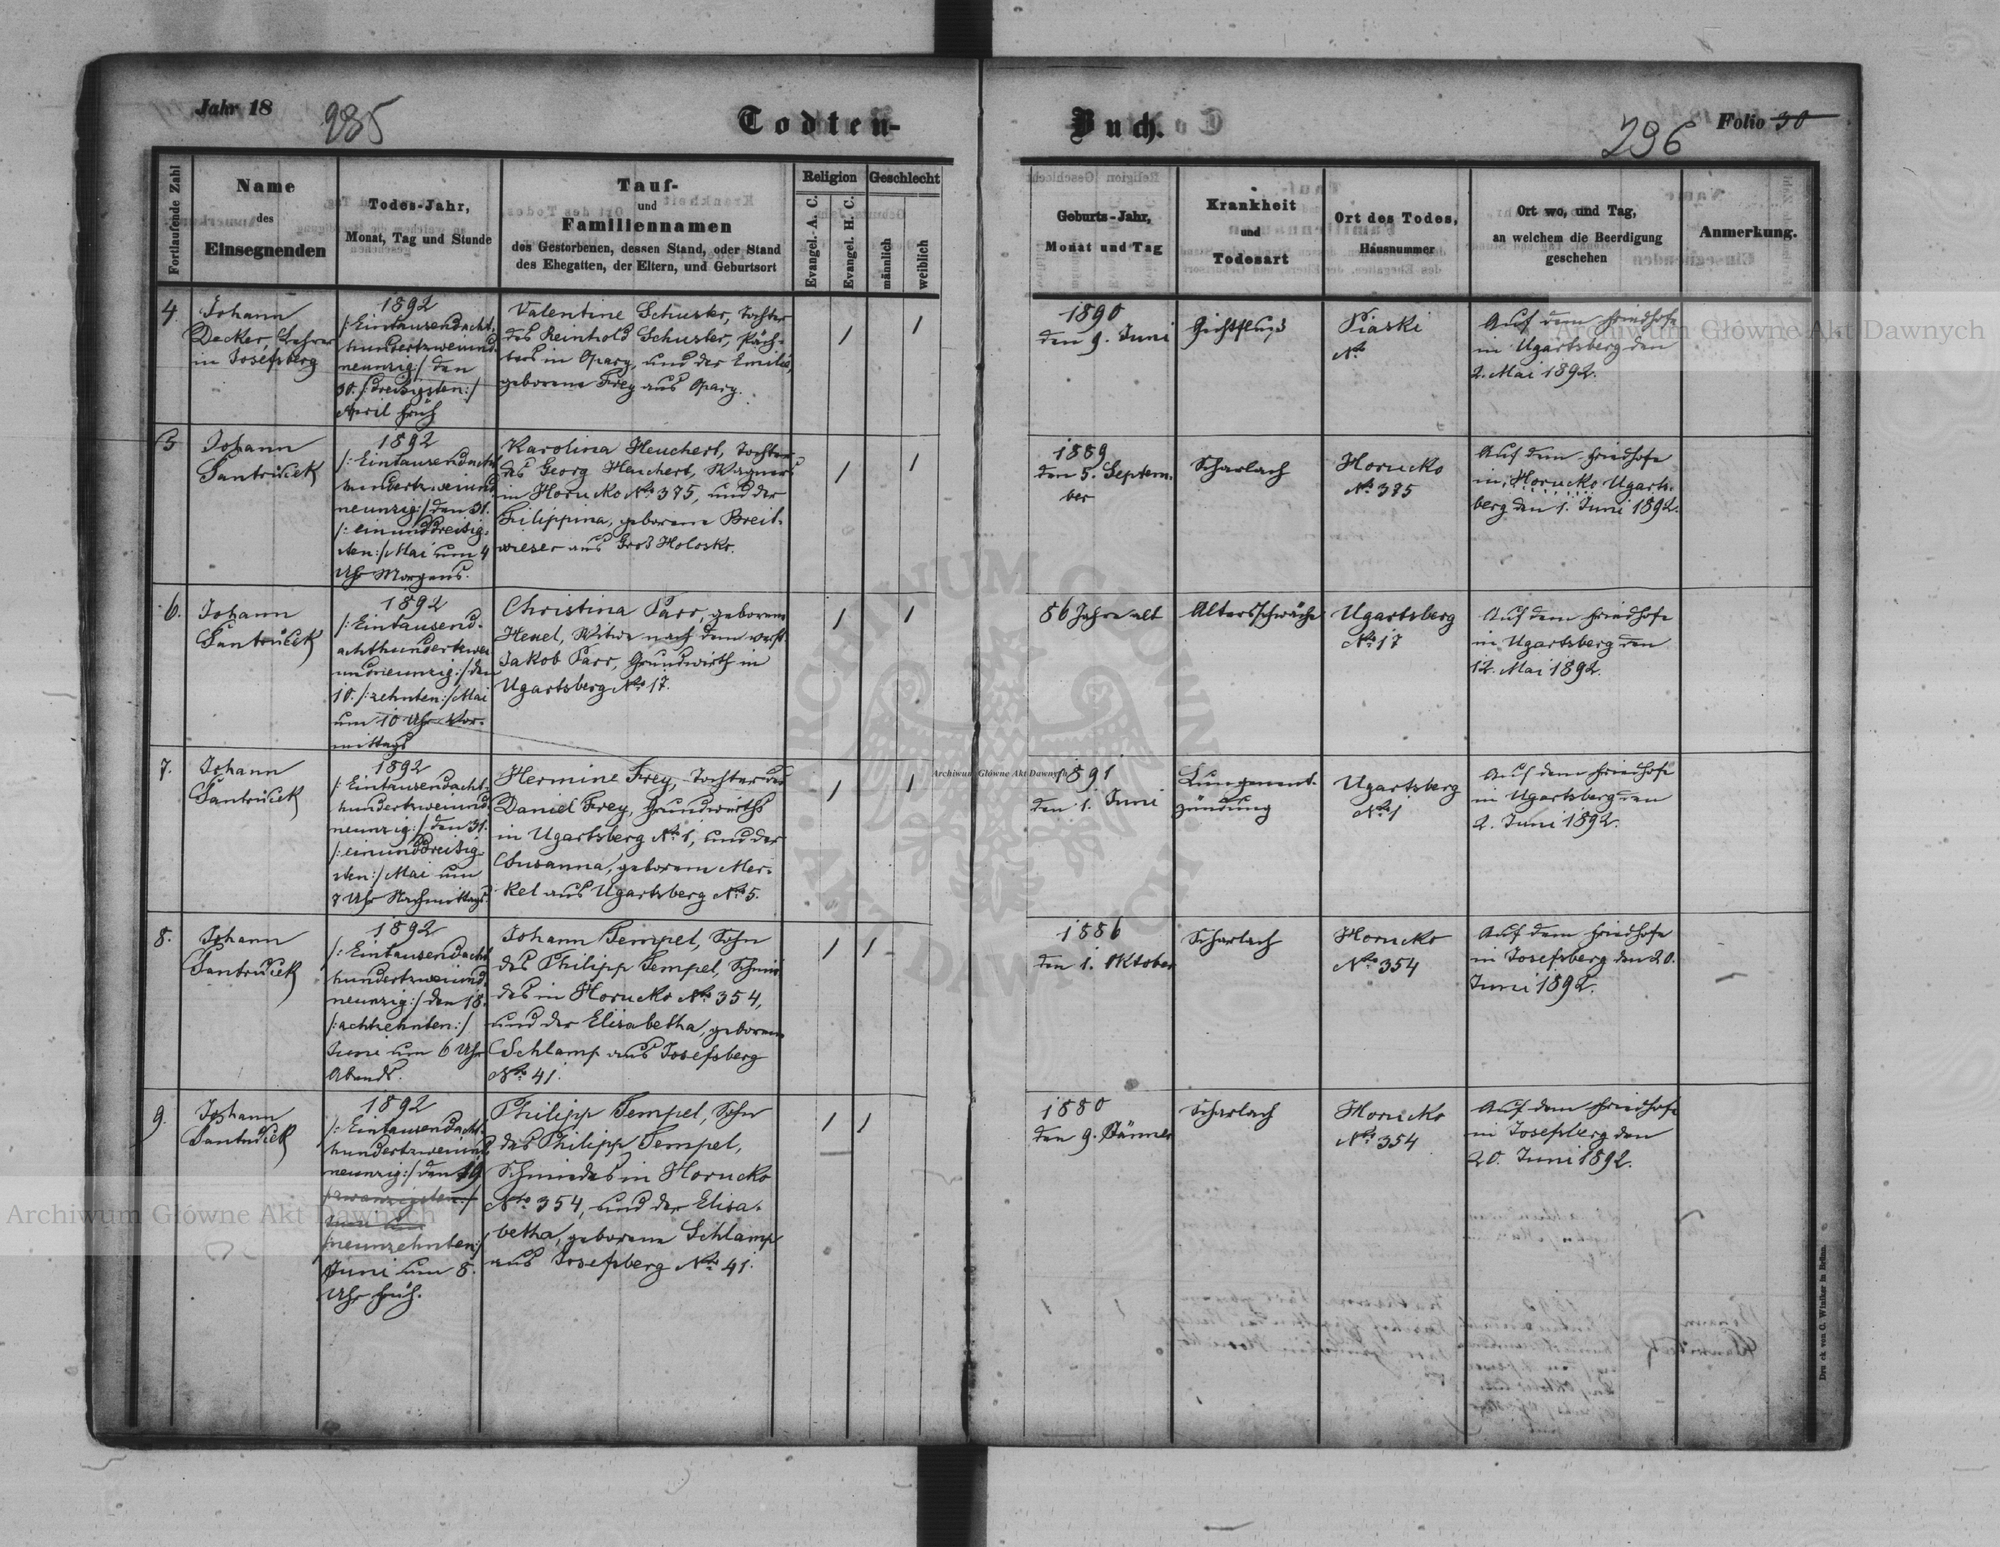 Jahr 18
285
Todten-
Buch.
296
Folio 30
Fortlaufende Zahl
Name
des
Einsegnenden
Todes-Jahr,
Monat, Tag und Stunde
Tauf-
und
Familiennamen
des Gestorbenen, dessen Stand, oder Stand
des Ehegatten, der Eltern, und Geburtsort
Religion
Evangel. A. C.
Evangel. H. C.
Geschlecht
männlich
weiblich
Geburts-Jahr,
Monat und Tag
Krankheit
und
Todesart
Ort des Todes,
Hausnummer
Ort wo, und Tag,
an welchem die Beerdigung
geschehen
Anmerkung.
4
Johann
Decker, Lehrer
in Josefsberg
1892
/:Eintausendacht-
hundertzweiund-
neunzig:/ den
30. /:dreisigsten:/
April früh
Valentine Schuster, Tochter
des Reinhold Schuster, Päch-
ters in Opary, und der Emilie,
geborene Frey aus Opary.
/
/
1890
den 9. Juni
Piaski
No
Auf dem Friedhofe
in Ugartsberg den
2. Mai 1892.
5
Johann
Santruček
1892
/:Eintausendacht
hundertzweiund
neunzig:/ den 31.
/:einunddreisig-
sten:/ Mai um 4
Uhr Morgens.
Karolina Heuchert, Tochter
des Georg Heuchert, Wagners
in Horucko No 375, und der
Filippina, geborene Breit-
wieser aus Groß Holosko.
/
/
1889
den 5. Septem-
ber
Scharlach
Horucko
No 375
Auf dem Friedhofe
in Horucko Ugarts-
berg den 1. Juni 1892.
6.
Johann
Santruček
1892
/:Eintausend-
achthundertzwei
undneunzig:/ den
10. /:zehnten:/ Mai
um 10 Uhr Vor-
mittags
Christina Parr, geborene
Henel, Witwe nach dem verst.
Jakob Parr, Grundwirth in
Ugartsberg No 17.
/
/
86 Jahre alt
Altersschwäche
Ugartsberg
No 17
Auf dem Friedhofe
in Ugartsberg den
12. Mai 1892.
7.
Johann
Santruček
1892
/:Eintausendacht-
hundertzweiund
neunzig:/ den 31.
/:einunddreisig-
sten:/ Mai um
7 Uhr Nachmittags
Hermine Frey, Tochter des
Daniel Frey, Grundwirths
in Ugartsberg No 1, und der
Susanna, geborene Mer-
kel aus Ugartsberg No 5.
/
/
1891
den 1. Juni
Lungenent-
zündung
Ugartsberg
No 1
Auf dem Friedhofe
in Ugartsberg den
2. Juni 1892.
8.
Johann
Santruček
1892
/:Eintausendacht
hundertzweiund
neunzig:/ den 18.
/:achtzehnten:/
Juni um 6 Uhr
Abends.
Johann Tempel, Sohn
des Philipp Tempel, Schmie-
des in Horucko No 354,
und der Elisabetha, geborene
Schlamp aus Josefsberg
No 41.
/
/
1886
den 1. Oktober
Scharlach
Horucko
No 354
Auf dem Friedhofe
in Josefsberg den 20.
Juni 1892.
9.
Johann
Santruček
1892
/:Eintausendacht-
hundertzweiund
neunzig:/ den 19
/:zwanzigsten:/
/:neunzehnten:/
Juni um 8.
Uhr früh.
Philipp Tempel, Sohn
des Philipp Tempel,
Schmiedes in Horucko
No 354, und der Elisa-
betha, geborene Schlamp
aus Josefsberg No 41.
/
/
1880
den 9. Jänner
Scharlach
Horucko
No 354
Auf dem Friedhofe
in Josefsberg den
20. Juni 1892.
Druck von C. Winiker in Brünn.
Archiwum Główne Akt Dawnych
Archiwum Główne Akt Dawnych
Archiwum Główne Akt Dawnych
ARCHIWUM GŁÓWNE AKT DAWNYCH